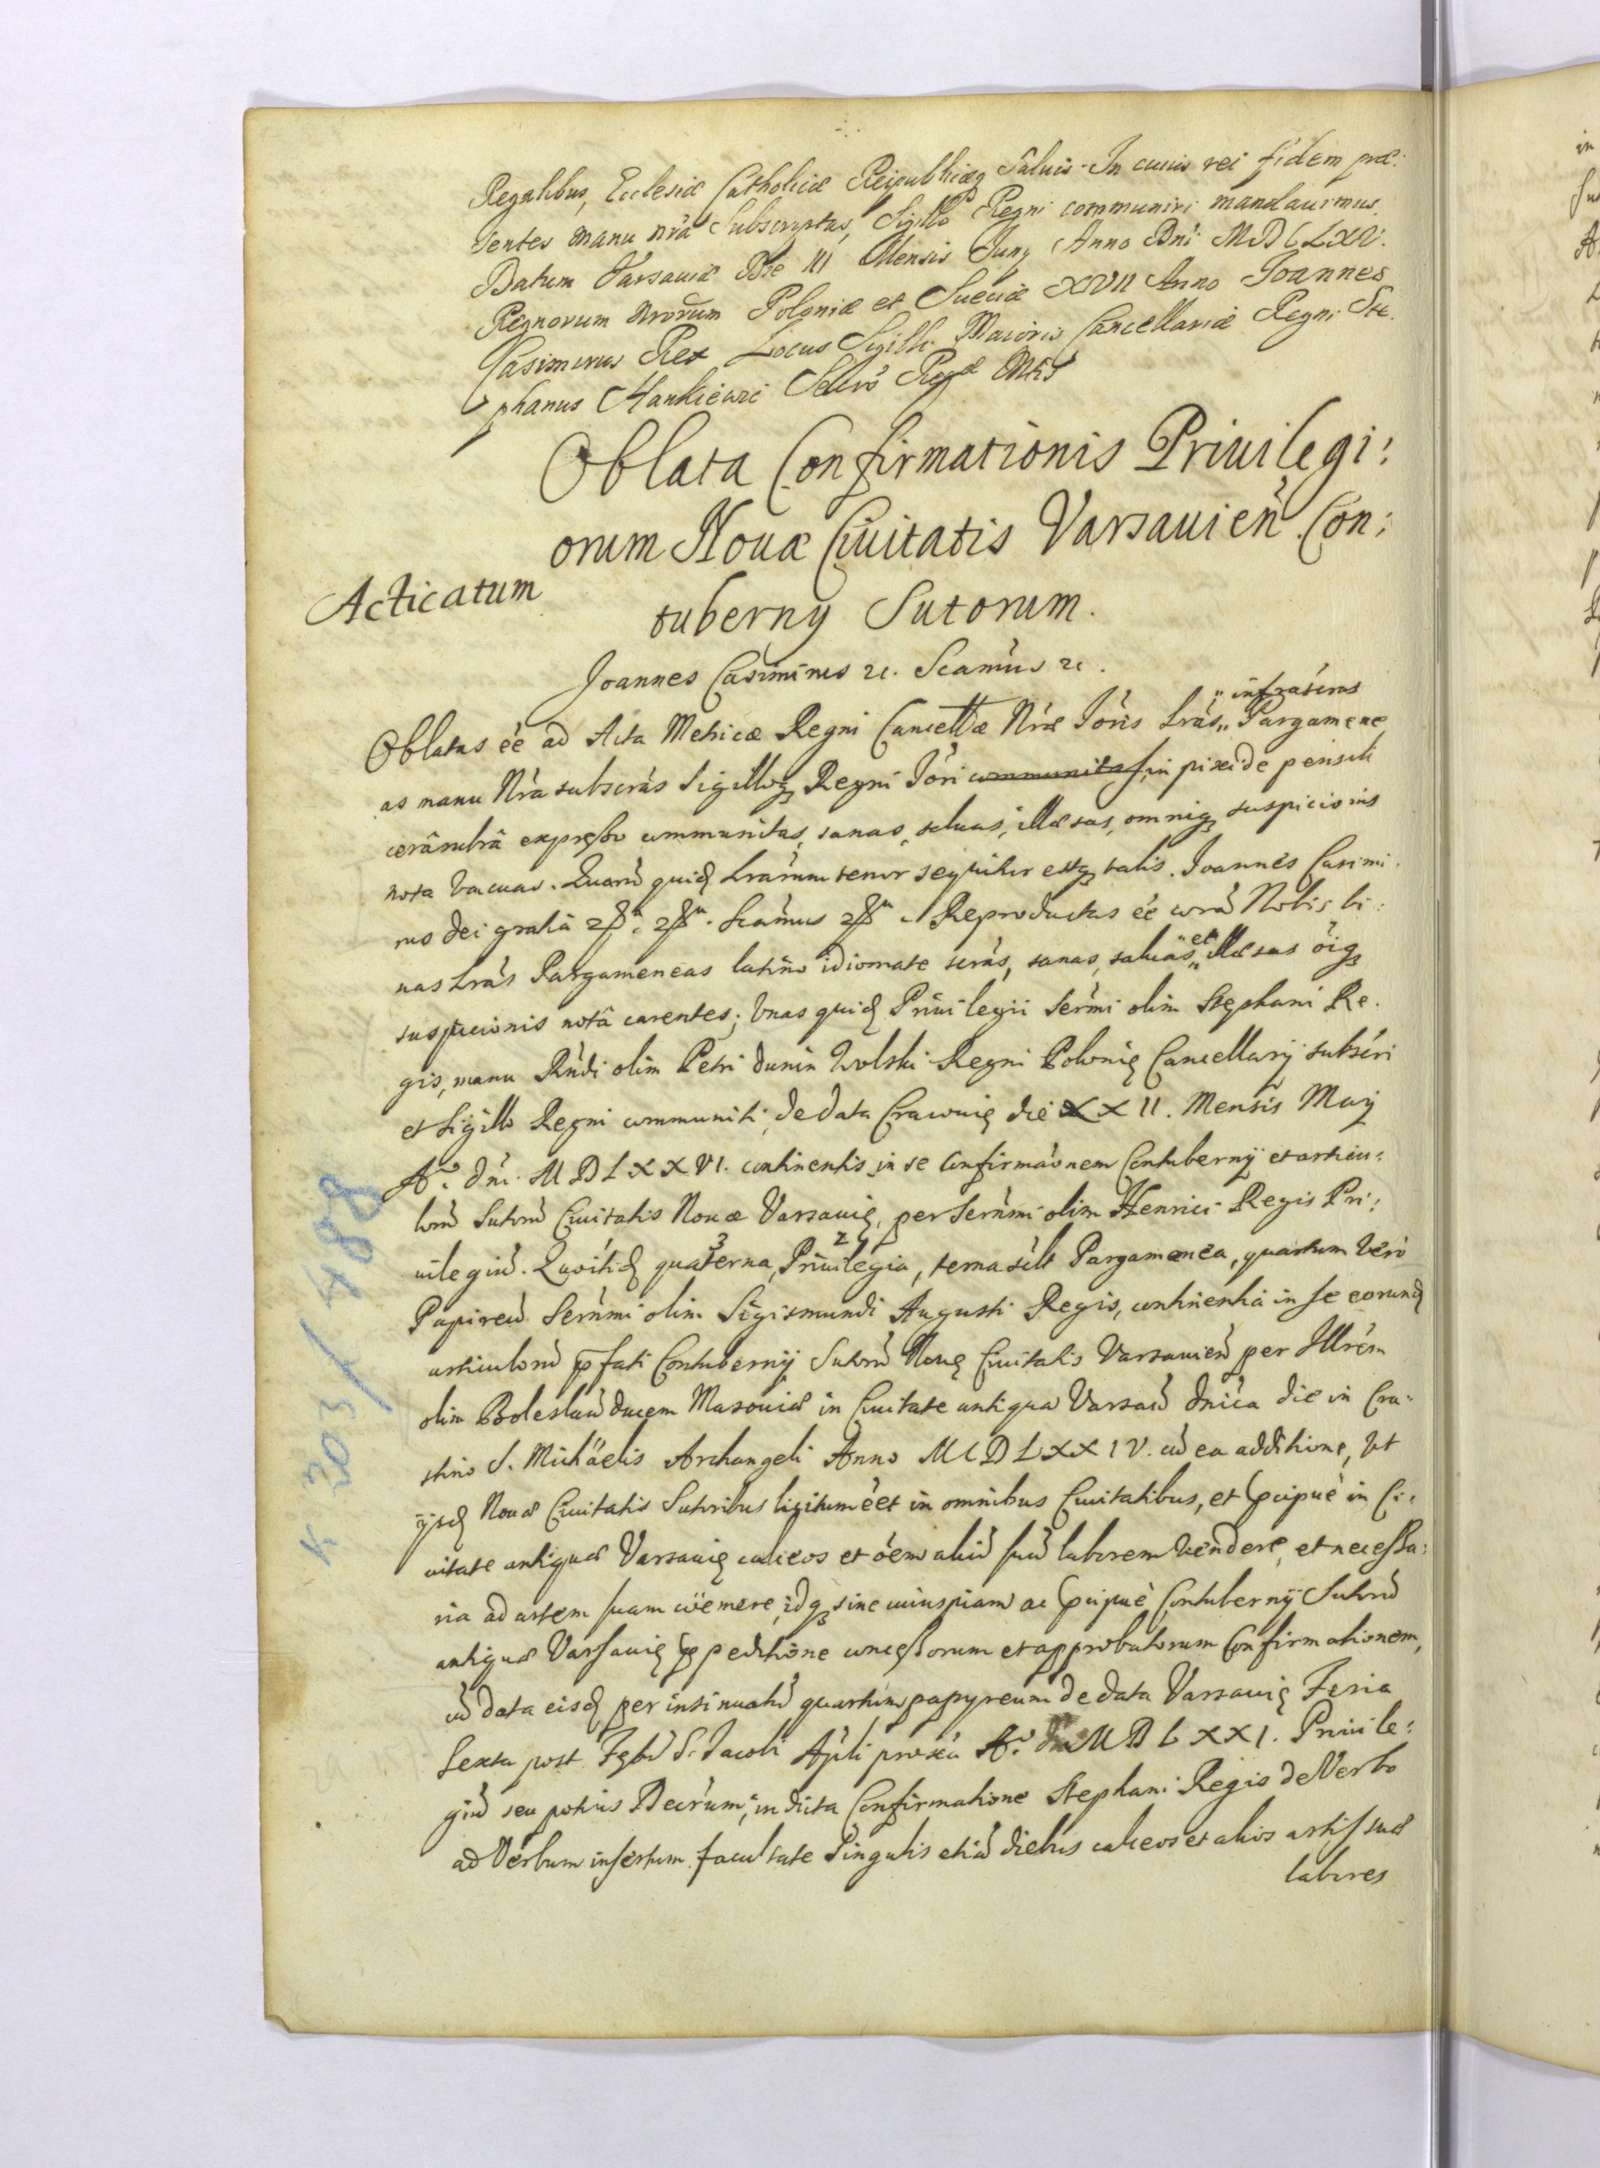 Regalibus, Ecclesiæ Catholicæ Reipublicæq Saluis. In cuius rei fidem præ:
sentes manu nrâ Subscriptas, Sigillo Regni communiri mandauimus.
Datum Varsauiæ Die III Mensis Juny Anno Dni MDCLXV.
Regnorum nrorum Poloniæ et Sueciæ XVII Anno Joannes
Casimirus Rex Locus Sigilli Maioris Cancellariæ Regni Ste.
phanus Hankiewic Secrò Regæ Mtis
Oblata Confirmationis Priuilegi:
orum Nouæ Ciuitatis Varsauien̄ Con:
Acticatum
tuberny Sutorum.
Joannes Casimirus &c. Scamùs &c.
Oblatas éé ad Acta Metricæ Regni Cancellæ Nræ Jóris Lrás „ infrascras „ Pargamene
as manu Nrâ subscrás Sigilloq Regni Jóri communitas, in pixide pensili
cerâ rubrâ expresso communitas, sanas, saluas, illæsas, omniq suspicionis
nota vacuas. Quarū quid Lrárum tenor sequitur estq talis. Joannes Casimi:
rus Dei gratiâ &c. &c. Scamus &c. Reproductas éé corā Nobis bi:
nas Lrás Pargameneas latino idiomate scrás, sanas, saluas „ et „ illæsas óiq
suspicionis notâ carentes; Vnas quid Priuilegii Sermi olim Stephani Re.
gis, manu Rndi olim Petri Dunin Wolski Regni Polonię Cancellarij subscri
et Sigillo Regni communiti, de data Cracouię die XXII. Mensis Maij
Aº. Dni. MDLXXVI. continentis in se Confirmáonem Contubernij et articu:
lorū Sutorū Ciuitatis Nouæ Varsauię, per Sermi olim Henrici Regis Pri:
uilegiū. Quoitid quaterna 3, Priuilegia 2, terna silt Pargamenea, quartum vero
Papireū Sermi olim Sigismundi Augusti Regis, continentia in se eorund
articulorū p̄fati Contubernij Sutorū Nouę Ciuitatis Varsauien̄ per Illrém
olim Boleslaū Ducem Masouiæ in Ciuitate antiqua Varsaū dnica die in Cra:
stino S. Michäelis Archangeli Anno MCDLXXIV. cū ea additione, vt
ijsd Nouæ Ciuitatis Sutoribus licitum éét in omnibus Ciuitatibus, et p̄cipuè in Ci:
uitate antiqua Varsauię calceos et óem aliū suū laborem vendere, et necessa:
ria ad artem suam cöemere, idq sine cuiuspiam ac p̄cipuè Contubernij Sutorū
antiquæ Varsauię p̄peditione concessorum et approbatorum Confirmationem,
cū data eisd per insinuatū quartum papyreum de data Varsauię Feria
Sexta post Fęstū S. Jacobi Apli proxia Aº. Dni MDLXXI. Priuile:
giū seu potius Decrétum, in dicta Confirmatione Stephani Regis de Verbo
ad Verbum insertum facultate singulis etiā diebus calceos et alios artis suæ
labores
K 303/488